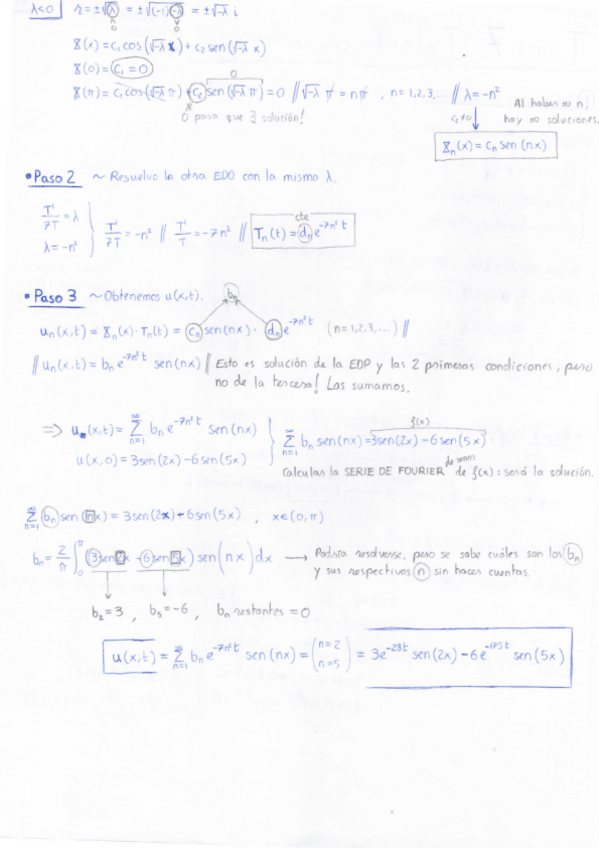 λ<0 r = ±√λ = ±√(-1)(-λ) = ±√-λ i
X(x) = c₁cos(√-λ x) + c₂ sen(√-λ x)
X(0) = c₁ = 0
X(π) = c₁cos(√-λ π) + c₂ sen(√-λ π) = 0 // √-λ π = nπ , n = 1,2,3,... // λ = -n²
0 para que ∃ solución!
c₂≠0
Al haber ∞ n, hay ∞ soluciones.
Xₙ(x) = cₙ sen(nx)
• Paso 2 ~ Resuelvo la otra EDO con la misma λ.
T'/7T = λ
λ = -n²
T'/7T = -n² // T'/T = -7n² // Tₙ(t) = dₙ e^(-7n²t)
cte
• Paso 3 ~ Obtenemos u(x,t).
bₙ
uₙ(x,t) = Xₙ(x)·Tₙ(t) = cₙ sen(nx) · dₙ e^(-7n²t) (n = 1,2,3,...) //
// uₙ(x,t) = bₙ e^(-7n²t) sen(nx) // Esto es solución de la EDP y las 2 primeras condiciones, pero
no de la tercera! Las sumamos.
⇒ u(x,t) = Σ_{n=1}^∞ bₙ e^(-7n²t) sen(nx)
u(x,0) = 3sen(2x) - 6sen(5x)
f(x)
Σ_{n=1}^∞ bₙ sen(nx) = 3sen(2x) - 6sen(5x)
Calcular la SERIE DE FOURIER de senos de f(x): será la solución.
Σ_{n=1}^∞ bₙ sen(nx) = 3sen(2x) - 6sen(5x) , x∈(0,π)
bₙ = 2/π ∫₀^π (3sen2x - 6sen5x) sen(nx) dx → Podría resolverse, pero se sabe cuáles son los bₙ
y sus respectivos n sin hacer cuentas.
b₂ = 3 , b₅ = -6 , bₙ restantes = 0
u(x,t) = Σ_{n=1}^∞ bₙ e^(-7n²t) sen(nx) = (n=2 n=5) = 3e^(-28t) sen(2x) - 6e^(-175t) sen(5x)